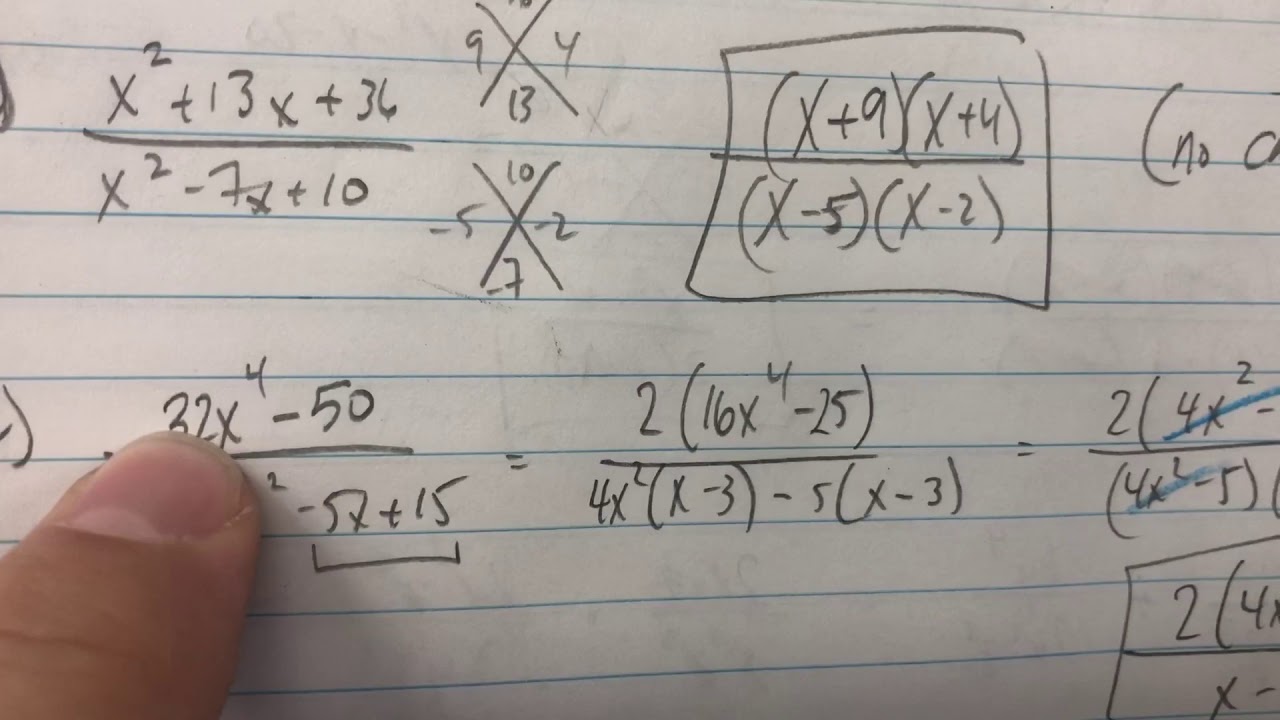 x² + 13x + 36
x² - 7x + 10
9 4
13
10
-5 -2
-7
(x+9)(x+4)
(x-5)(x-2)
(no
32x⁴ - 50
² - 5x + 15
=
2(16x⁴ - 25)
4x²(x-3) - 5(x-3)
=
2(4x² -
(4x² - 5)(
2(4x
x -